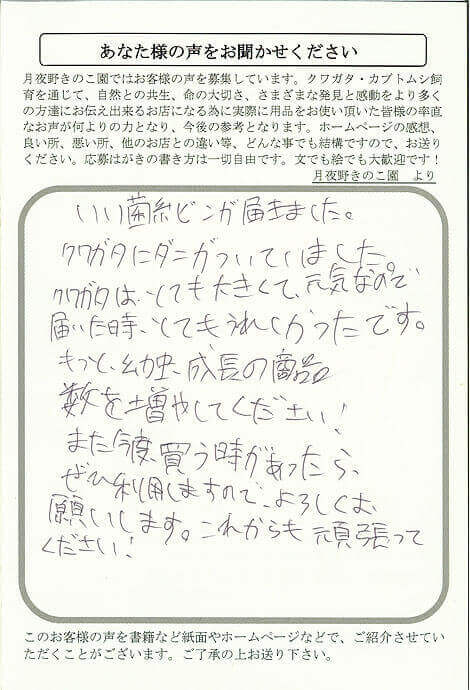 あなた様の声をお聞かせください
月夜野きのこ園ではお客様の声を募集しています。クワガタ・カブトムシ飼
育を通じて、自然との共生、命の大切さ、さまざまな発見と感動をより多く
の方達にお伝え出来るお店になる為に実際に用品をお使い頂いた皆様の率直
なお声が何よりの力となり、今後の参考となります。ホームページの感想、
良い所、悪い所、他のお店との違い等、どんな事でも結構ですので、お送り
ください。応募はがきの書き方は一切自由です。文でも絵でも大歓迎です！
月夜野きのこ園　より
いい菌糸ビンが届きました。
クワガタにダニがついていました。
クワガタは、とても大きくて、元気なので
届いた時、とてもうれしかったです。
もっと、幼虫、成長の商品
数を増やしてください！
また今度、買う時があったら、
ぜひ利用しますので、よろしくお、
願いします。これからも頑張って
ください！
このお客様の声を書籍など紙面やホームページなどで、ご紹介させてい
ただくことがございます。ご了承の上お送り下さい。